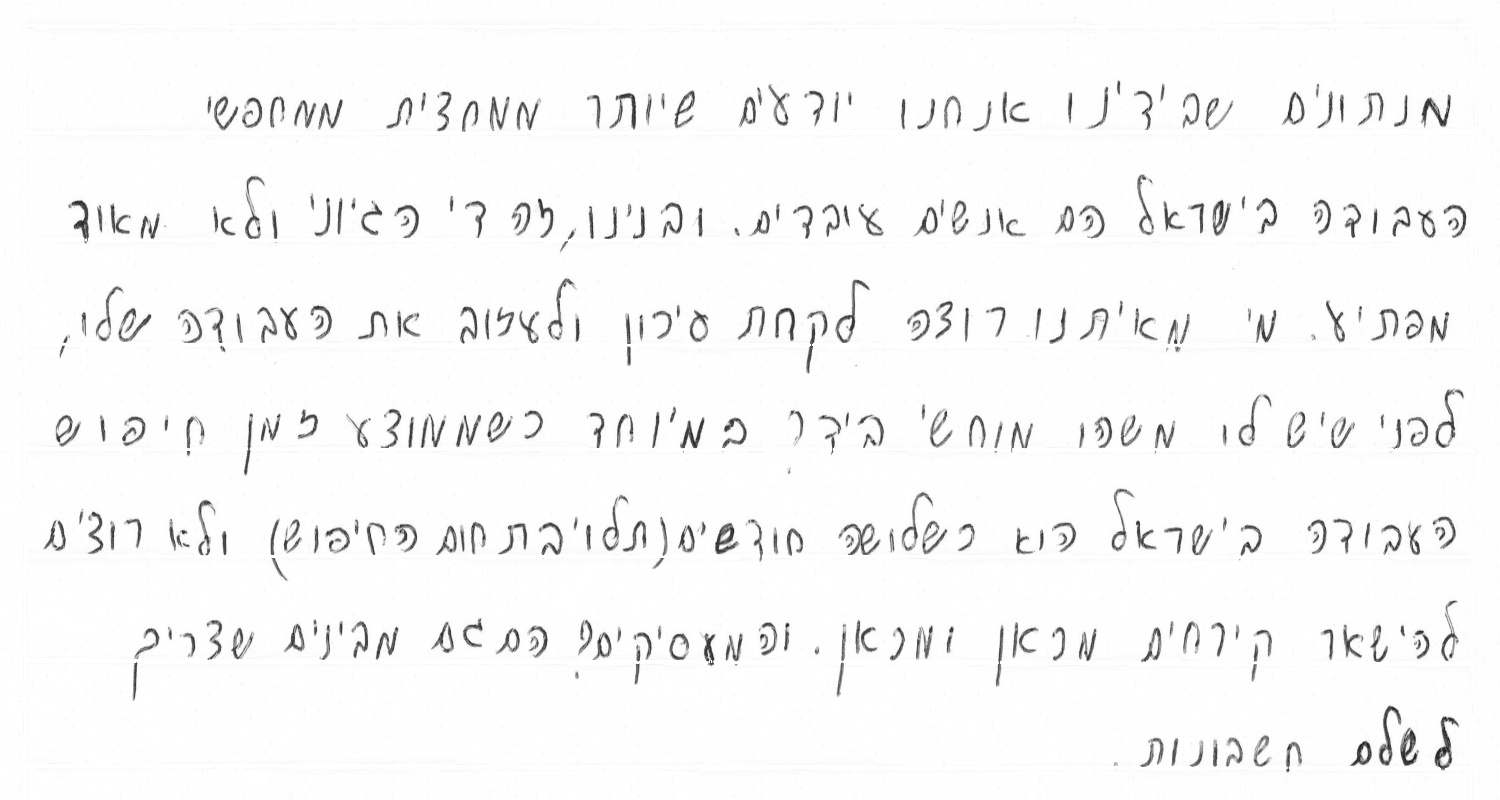 מנתונים שבידינו אנחנו יודעים שיותר ממחצית ממחפשי
העבודה בישראל הם אנשים עובדים. ובנינו, זה די הגיוני ולא מאוד
מפתיע. מי מאיתנו רוצה לקחת סיכון ולעזוב את העבודה שלו,
לפני שיש לו משהו מוחשי ביד? במיוחד כשממוצע זמן חיפוש
העבודה בישראל הוא כשלושה חודשים (תלוי בתחום החיפוש) ולא רוצים
להישאר קירחים מכאן ומכאן. והמעסיקים? הם גם מבינים שצריך
לשלם חשבונות.